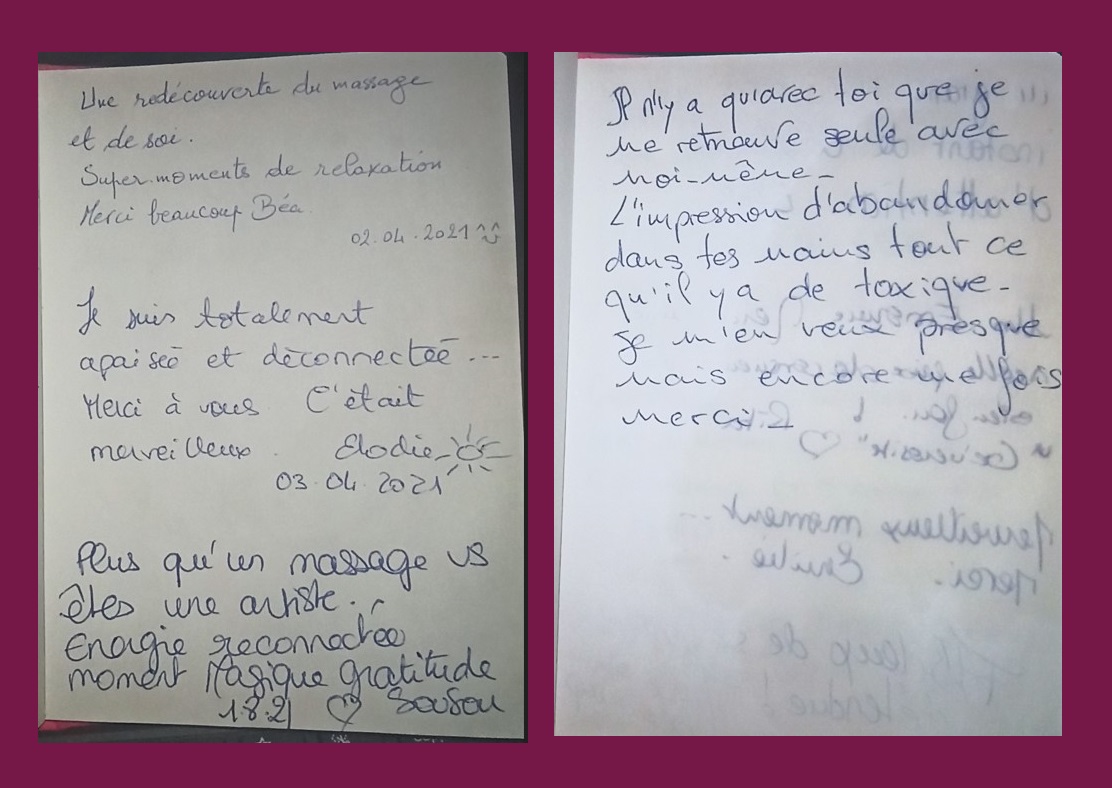 Une redécouverte du massage
et de soi.
Super moments de relaxation
Merci beaucoup Béa
02.04.2021
Je suis totalement
apaiseé et déconnecteé...
Merci à vous C'était
merveilleux. Elodie
03.04.2021
Plus qu'un massage vs
êtes une artiste.
Energie reconnectée
moment Magique gratitude
1.8.21 ♡ Sousou
Il n'y a qu'avec toi que je
me retrouve seule avec
moi-même-
L'impression d'abandonner
dans tes mains tout ce
qu'il y a de toxique-
je m'en veux presque
mais encore une fois
merci
"
♡
Merveilleux moment...
Merci. Emilie.